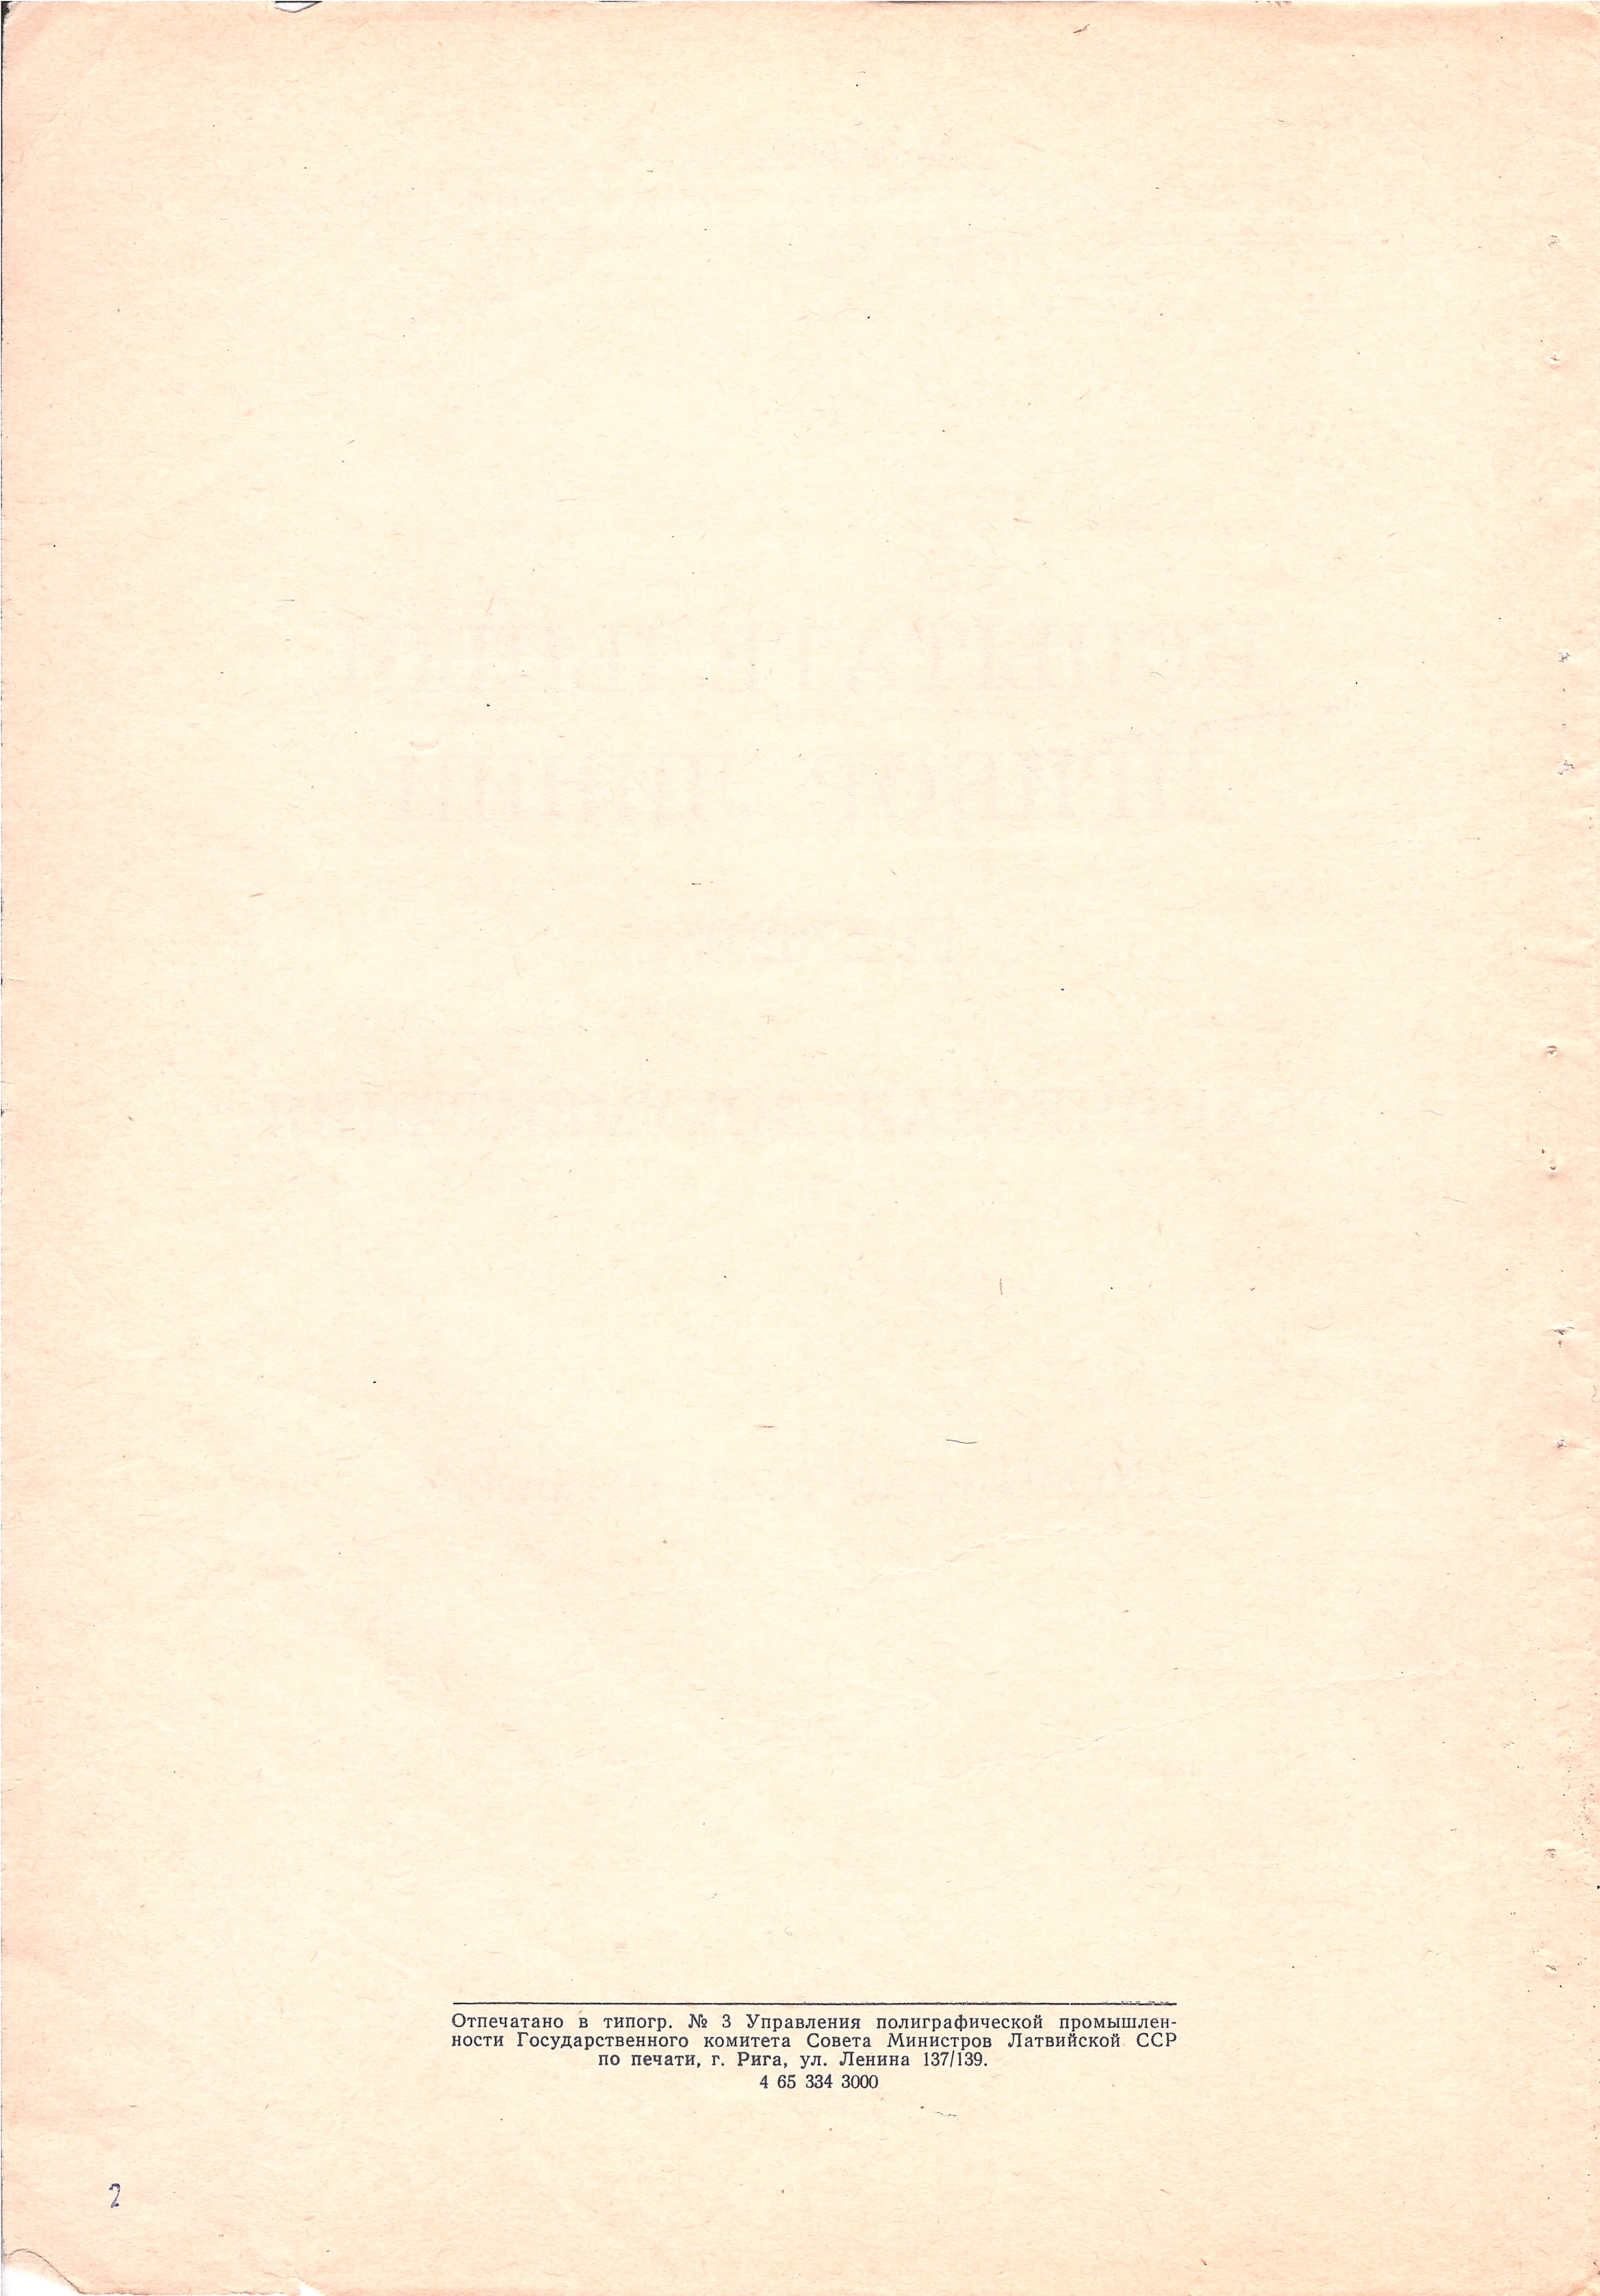 Отпечатано в типогр. № 3 Управления полиграфической промышлен-
ности Государственного комитета Совета Министров Латвийской ССР
по печати, г. Рига, ул. Ленина 137/139.
4 65 334 3000
2